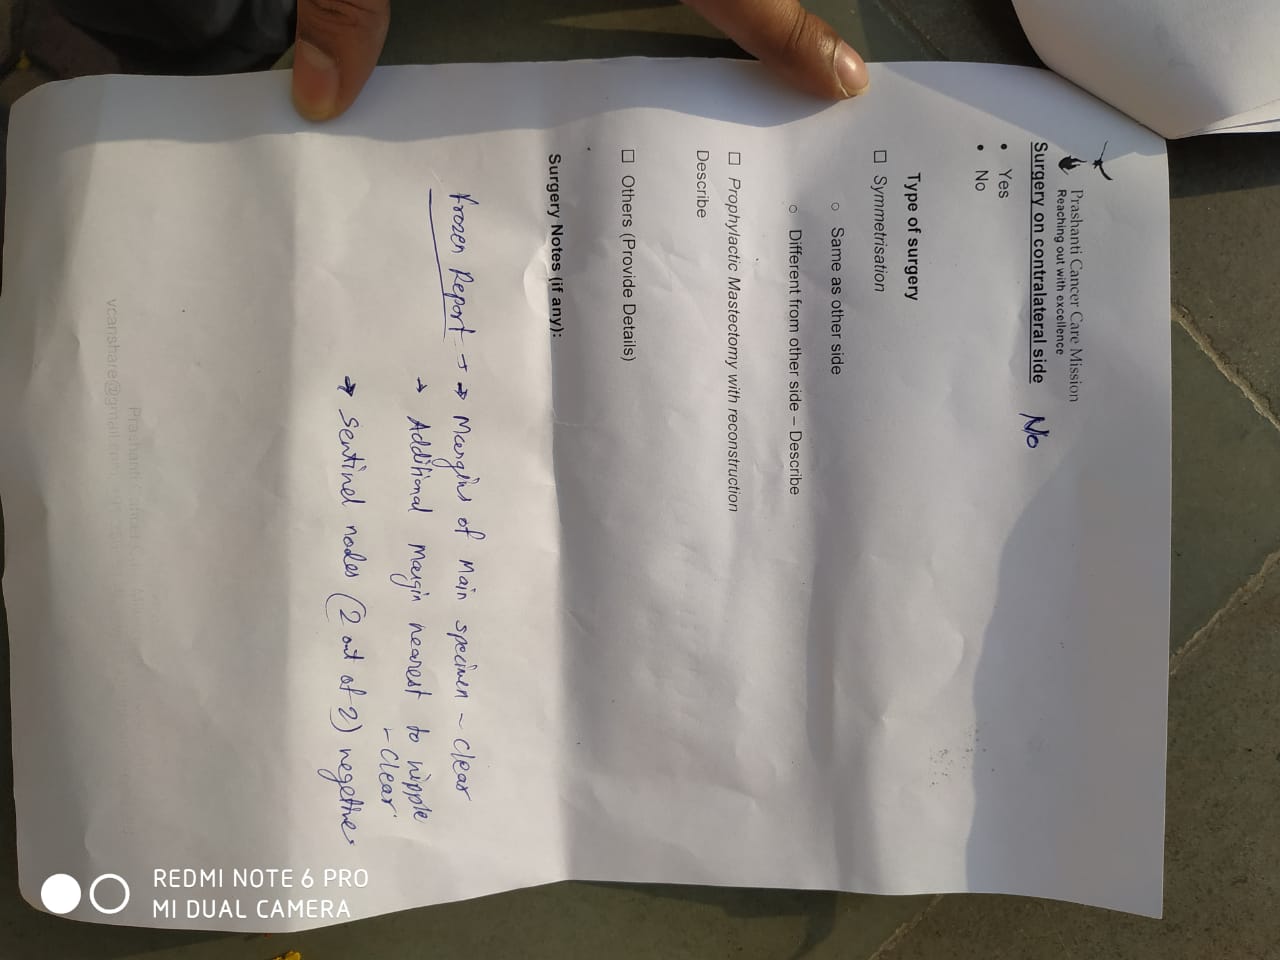 Prashanti Cancer Care Mission
Reaching out with excellence
Surgery on contralateral side No
• Yes
• No
Type of surgery
☐ Symmetrisation
○ Same as other side
○ Different from other side – Describe
☐ Prophylactic Mastectomy with reconstruction
Describe
☐ Others (Provide Details)
Surgery Notes (if any):
Frozen Report → → Margins of Main specimen - clear
→ Additional Margin nearest to nipple
- Clear.
→ Sentinel nodes (2 out of 2) negetive.
vcanshare@gmail.com
REDMI NOTE 6 PRO
MI DUAL CAMERA